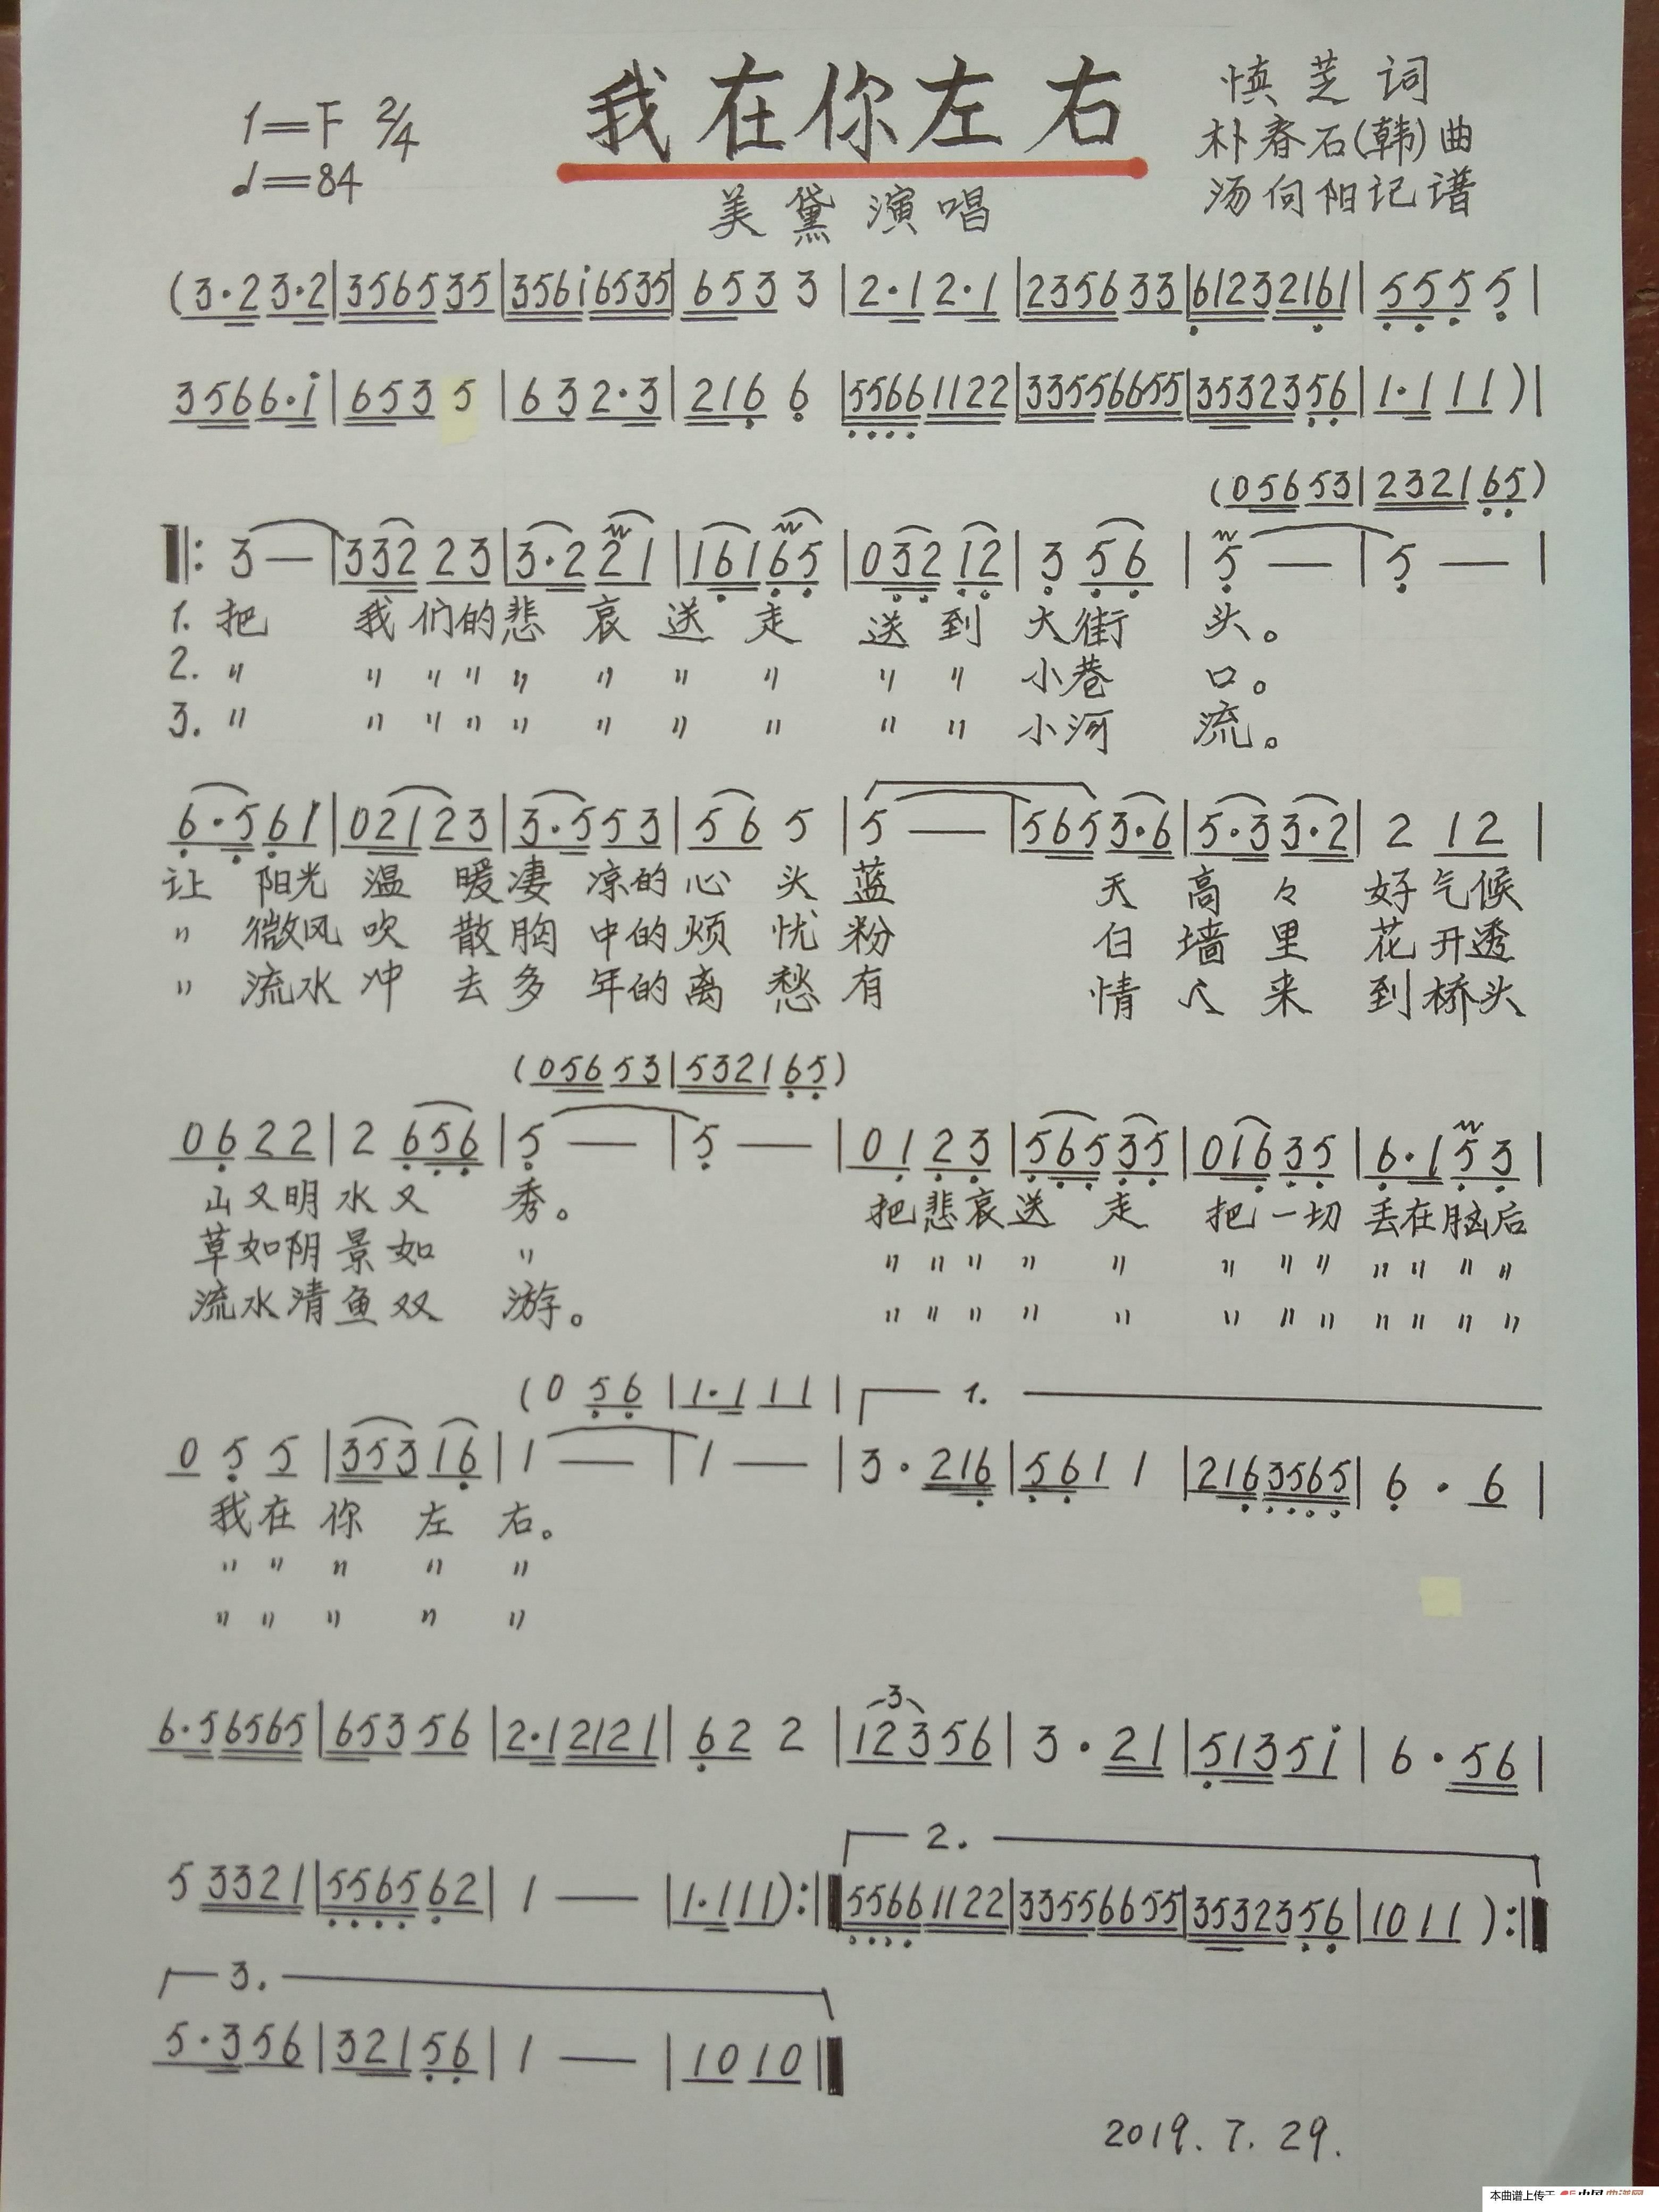 我在你左右
1=F 2/4
♩=84
慎芝词
朴春石(韩)曲
汤伺阳记谱
美黛演唱
(3·2 3·2|3565 35|356i 6535|653 3|2·1 2·1|2356 33|6123 2161|555 5|
3566·i|653 5|63 2·3|216 6|5566 1122|3355 6655|3532356|1·1 11)|
(056 53|2321 65)
‖: 3 —|332 23|3·2 21|161 65|032 12|3 56|5 —|5 —|
1. 把 我们的悲哀送走 送到大街头。
2. 〃 〃 〃 〃 〃 〃 〃 〃 〃 〃 小巷口。
3. 〃 〃 〃 〃 〃 〃 〃 〃 〃 〃 小河流。
6·5 61|021 23|3·5 53|56 5|5 —|565 3·6|5·3 3·2|2 12|
让阳光温暖凄凉的心头 蓝天高々好气候
〃微风吹散胸中的烦忧 粉白墙里花开透
〃流水冲去多年的离愁 有情人来到桥头
(056 53|5321 65)
06 22|2 656|5 —|5 —|01 23|565 35|016 35|6·1 53|
山又明水又秀。 把悲哀送走 把一切丢在脑后
草如阴景如〃 〃 〃 〃 〃 〃 〃 〃 〃 〃 〃 〃 〃
流水清鱼双游。 〃 〃 〃 〃 〃 〃 〃 〃 〃 〃 〃 〃
(0 56|1·1 11| 1.
0 5 5|353 16|1 —|1 —|3·216|561 1|216 3565|6·6|
我在你左右。
〃 〃 〃 〃 〃
〃 〃 〃 〃 〃
6·5 6565|653 56|2·1 2121|62 2|3
123 56|3·21|513 5i|6·56|
2.
5 3321|5565 62|1 —|1·1 11):‖5566 1122|3355 6655|3532356|10 11):‖
3.
5·3 56|321 56|1 —|10 10‖
2019.7.29.